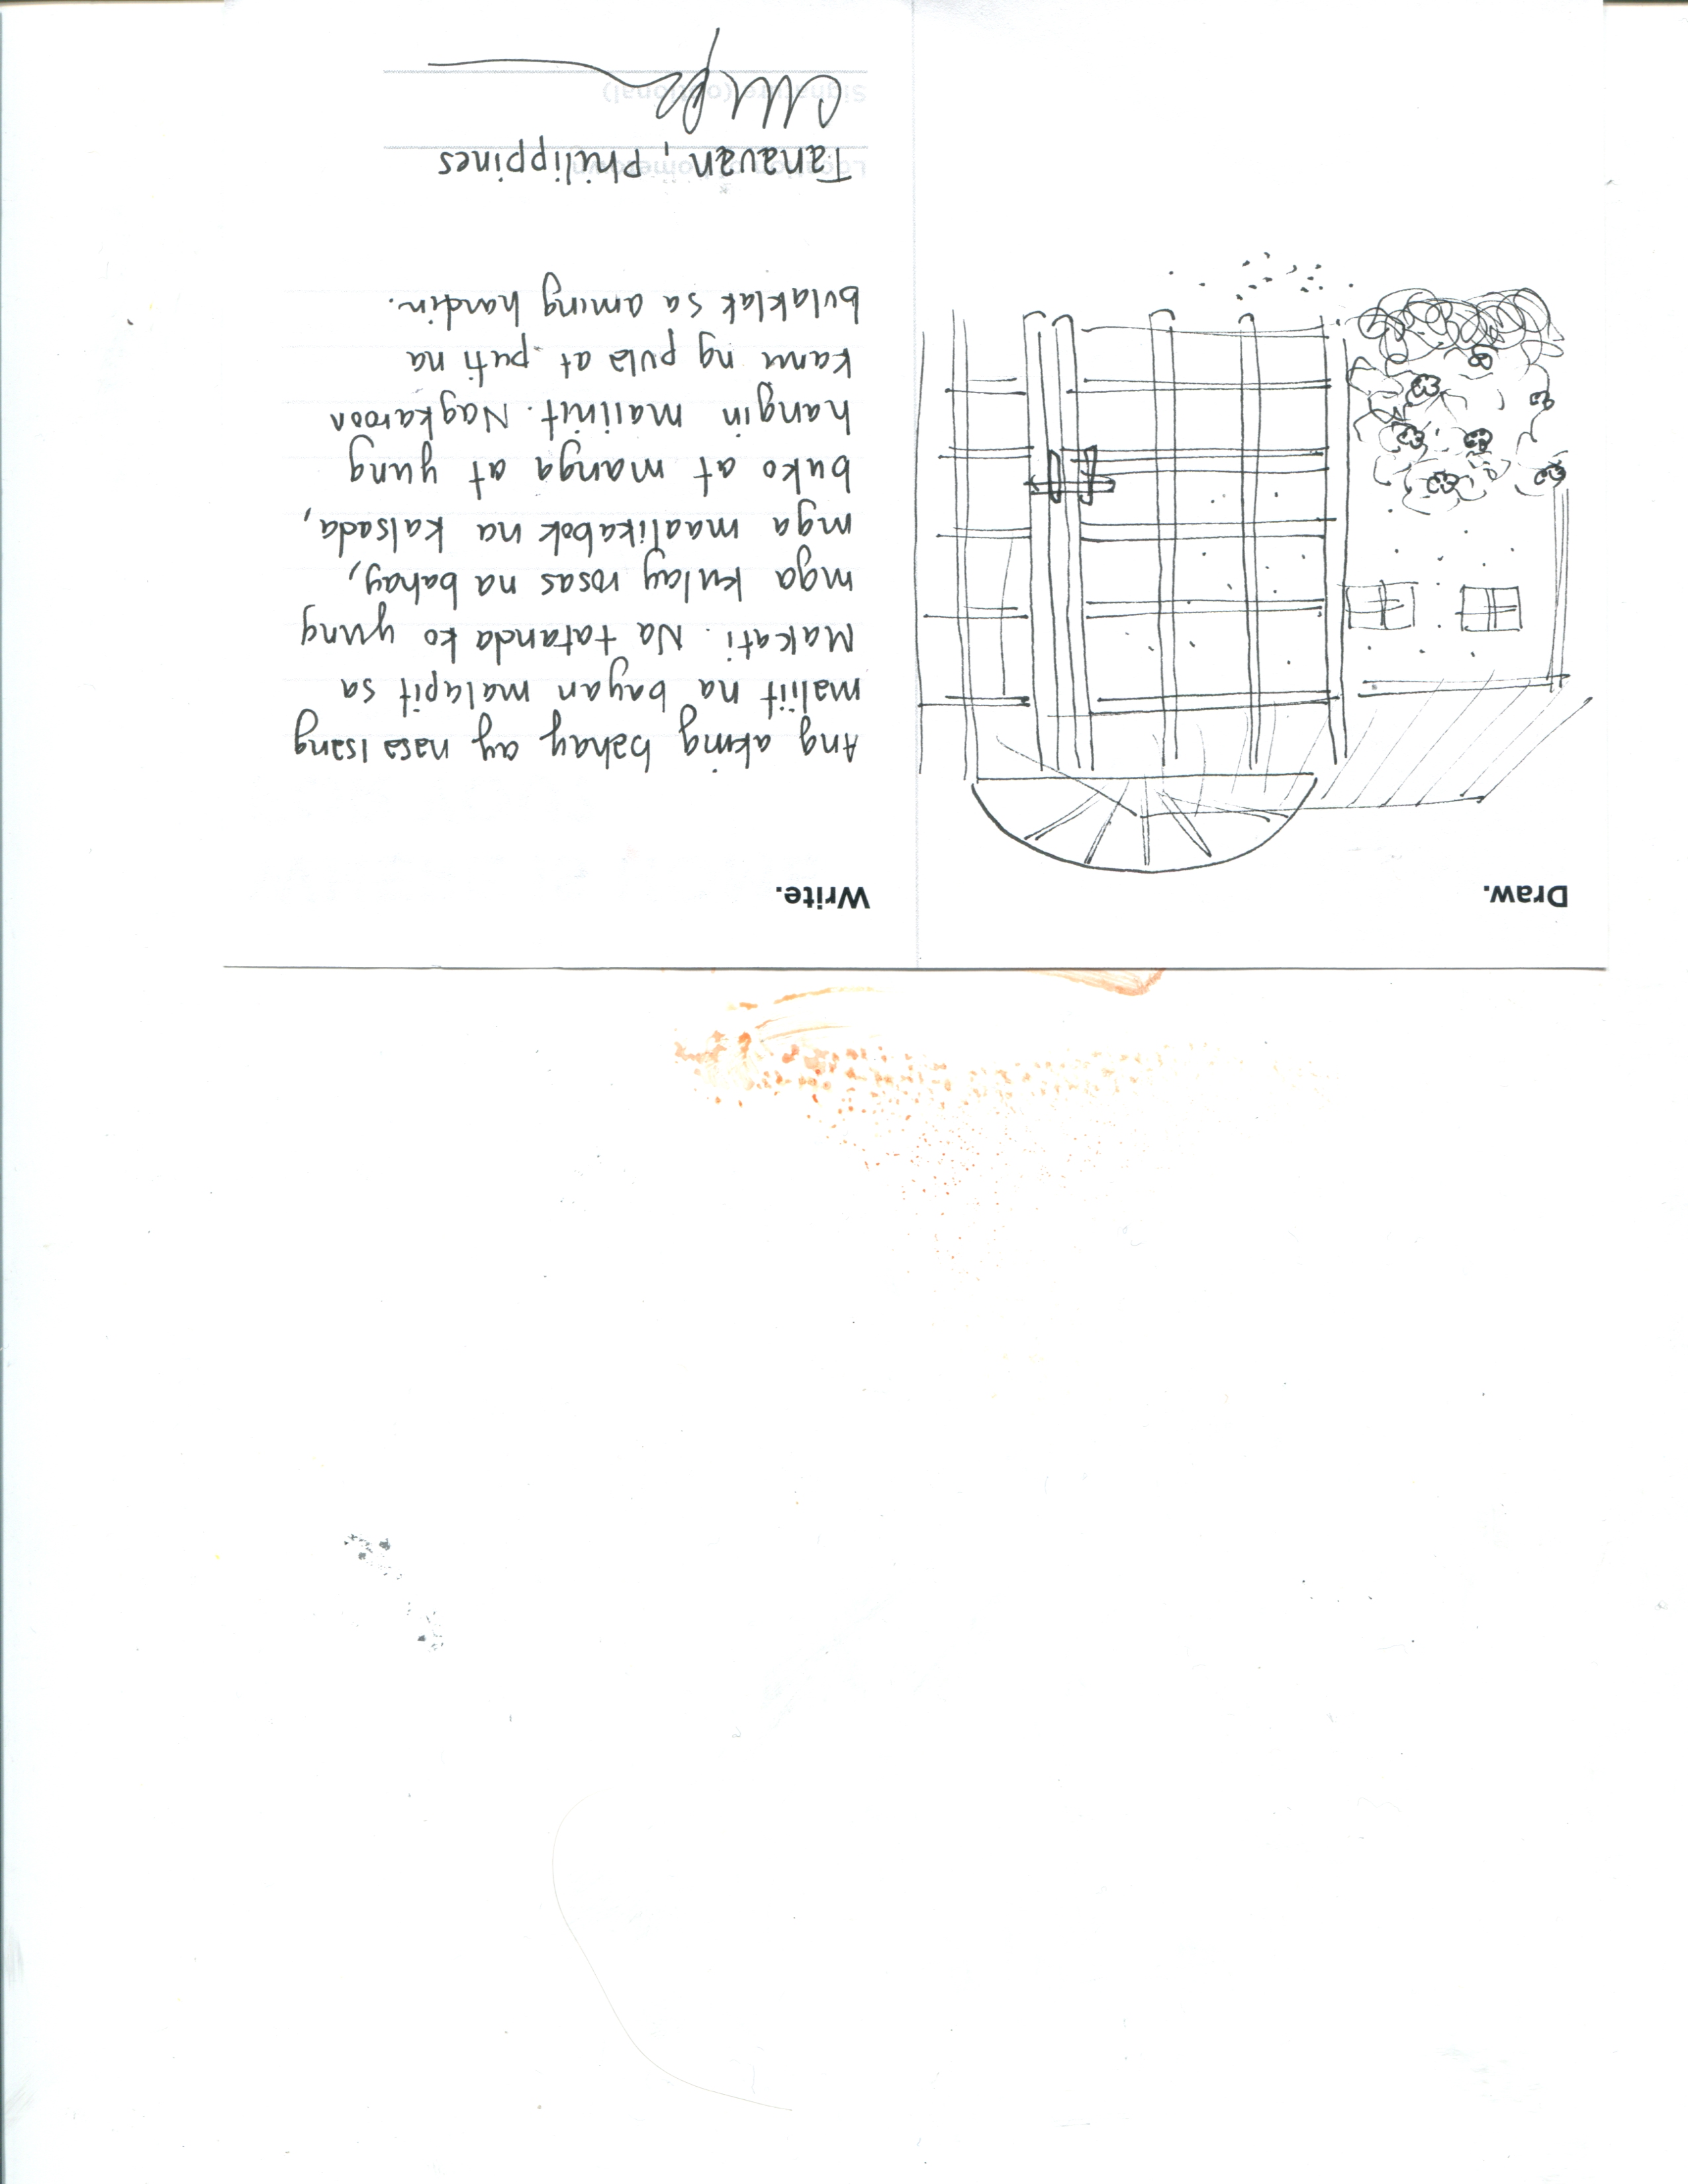 Draw.
Write.
Ang aking bahay ay nasa isang
maliit na bayan malapit sa
Makati. Na tatanda ko yung
mga kulay rosas na bahay,
mga maalikabok na kalsada,
buko at manga at yung
hangin maiinit. Nagkaroon
kami ng pula at puti na
bulaklak sa aming hardin.
Tanauan, Philippines
Location of hometown
Signature (optional)